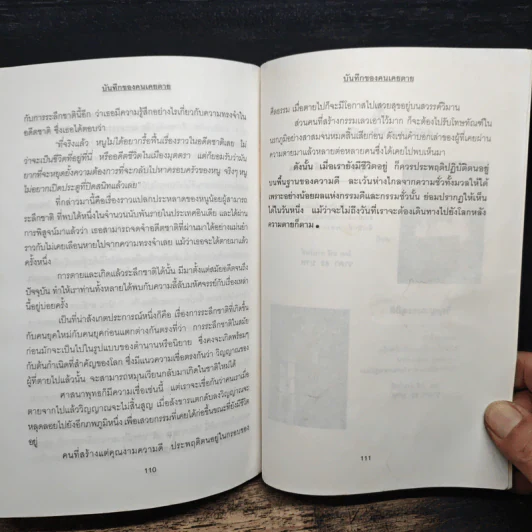 บันทึกของคนเคยตาย
กับการระลึกชาตินี้อีก ว่าเธอมีความรู้สึกอย่างไรเกี่ยวกับความทรงจำใน
อดีตชาติ ซึ่งเธอได้ตอบว่า
"ที่จริงแล้ว หนูไม่ได้อยากรื้อฟื้นเรื่องราวในอดีตชาติเลย ไม่
ว่าจะเป็นชีวิตที่อยู่ที่นี่ หรืออดีตชีวิตในเมืองมุตตรา แต่ก็ยอมรับว่ามัน
ยากที่จะหยุดยั้งความต้องการที่จะกลับไปหาครอบครัวของหนู จริงๆ หนู
ไม่อยากเปิดประตูที่ปิดสนิทแล้วเลย"
ที่กล่าวมานี้คือเรื่องราวแปลกประหลาดของหนูน้อยผู้สามารถ
ระลึกชาติ ที่พบได้หนึ่งในจำนวนนับพันรายในประเทศอินเดีย และได้ผ่าน
การพิสูจน์มาแล้วว่า เธอสามารถจดจำอดีตชาติที่ผ่านมาได้อย่างแม่นยำ
ราวกับไม่เคยเลือนหายไปจากความทรงจำเลย แม้ว่าเธอจะได้ตายมาแล้ว
ครั้งหนึ่ง
การตายและเกิดแล้วระลึกชาติได้นั้น มีมาตั้งแต่สมัยอดีตจนถึง
ปัจจุบัน ทำให้เราท่านทั้งหลายได้พบกับความลี้ลับมหัศจรรย์กับเรื่องเหล่า
นี้อยู่บ่อยครั้ง
เป็นที่น่าสังเกตประการหนึ่งก็คือ เรื่องการระลึกชาติที่เกิดขึ้น
กับคนยุคใหม่กับคนยุคก่อนแตกต่างกันตรงที่ว่า การระลึกชาติในสมัย
ก่อนมักจะเป็นไปในรูปแบบของตำนานหรือนิยาย ซึ่งคงจะเกิดพร้อมๆ
กับต้นกำเนิดที่สำคัญของโลก ซึ่งมีแนวความเชื่อตรงกันว่า วิญญาณของ
ผู้ที่ตายไปแล้วนั้น จะสามารถหมุนเวียนกลับมาเกิดในชาติใหม่ได้
ศาสนาพุทธก็มีความเชื่อเช่นนี้ แต่เราจะเชื่อกันว่าคนเราเมื่อ
ตายจากไปแล้ววิญญาณจะไม่สิ้นสูญ เมื่อสังขารแตกดับลงวิญญาณจะ
หลุดลอยไปยังอีกภพภูมิหนึ่ง เพื่อเสวยกรรมที่เคยได้ก่อขึ้นขณะที่ยังมีชีวิต
อยู่
คนที่สร้างแต่คุณงามความดี ประพฤติตนอยู่ในกรอบของ
110
บันทึกของคนเคยตาย
ศีลธรรม เมื่อตายไปก็จะมีโอกาสไปเสวยสุขอยู่บนสวรรค์วิมาน
ส่วนคนที่สร้างกรรมเลวเอาไว้มาก ก็จะต้องไปรับโทษทัณฑ์ใน
นรกภูมิอย่างสาสมจนหมดสิ้นเสียก่อน ดังเช่นคำบอกเล่าของผู้ที่เคยผ่าน
ความตายมาแล้วหลายต่อหลายคนซึ่งได้เคยไปพบเห็นมา
ดังนั้น เมื่อเรายังมีชีวิตอยู่ ก็ควรประพฤติปฏิบัติตนอยู่
บนพื้นฐานของความดี ละเว้นห่างไกลจากความชั่วทั้งมวลให้ได้
เพราะอย่างน้อยผลแห่งกรรมดีและกรรมชั่วนั้น ย่อมปรากฏให้เห็น
ได้ในวันหนึ่ง แม้ว่าจะไม่ถึงวันที่เราจะต้องเดินทางไปยังโลกหลัง
ความตายก็ตาม
111